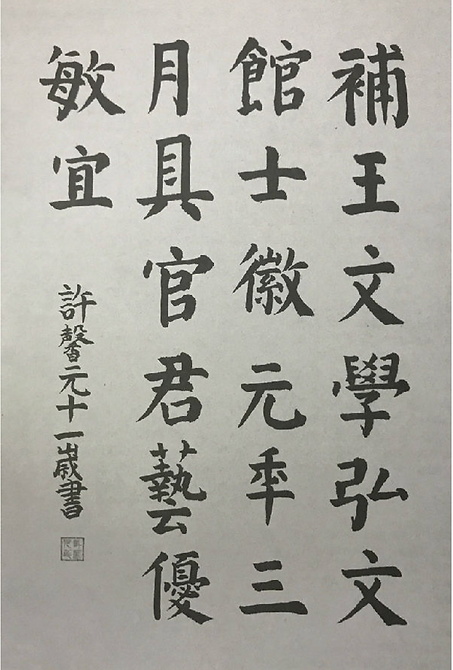 補王文學弘文
館士徽元年三
月具官君藝優
敏宜
許馨元十一歲書